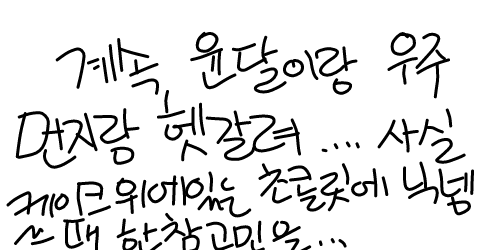 계속 윤달이랑 우주
먼지랑 헷갈려 .... 사실
케이크위에있는 초콜릿에 닉넴
쓰 때 한참고민을...